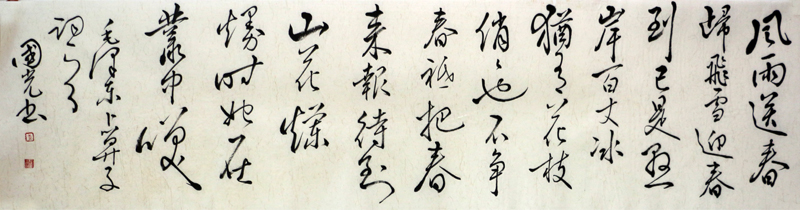 風雨送春
歸飛雪迎春
到已是懸
岸百丈冰
猶有花枝
俏俏也不争
春祗把春
来報待到
山花爛
熳时她在
叢中咲
毛澤东卜算子
國光书